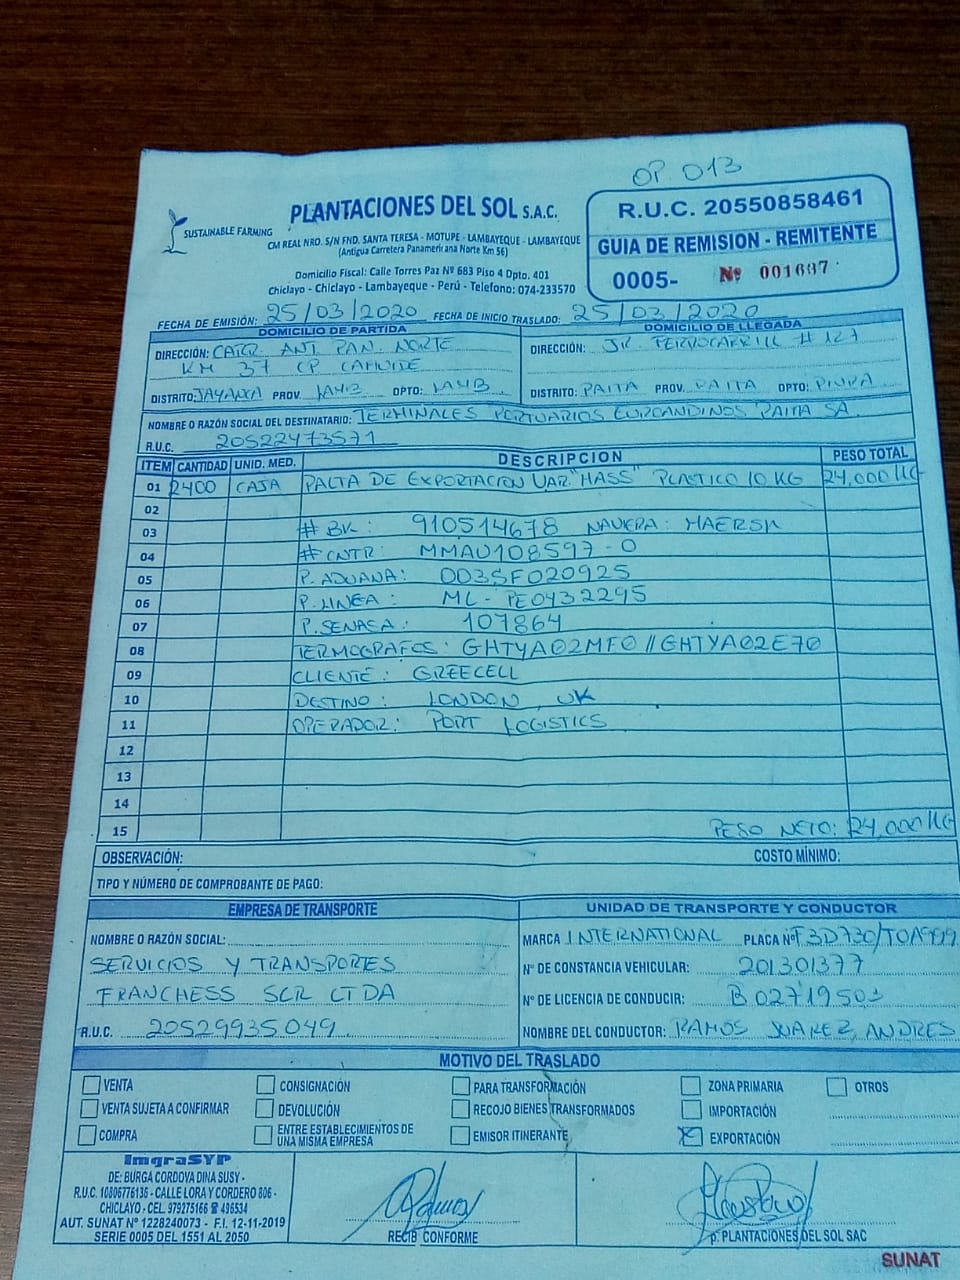 OP. 013
SUSTAINABLE FARMING
PLANTACIONES DEL SOL S.A.C.
CM REAL NRO. S/N FND. SANTA TERESA - MOTUPE - LAMBAYEQUE - LAMBAYEQUE
(Antigua Carretera Panamericana Norte Km 56)
Domicilio Fiscal: Calle Torres Paz Nº 683 Piso 4 Dpto. 401
Chiclayo - Chiclayo - Lambayeque - Perú - Telefono: 074-233570
R.U.C. 20550858461
GUIA DE REMISION - REMITENTE
0005- Nº 001637
FECHA DE EMISIÓN: 25/03/2020 FECHA DE INICIO TRASLADO: 25/03/2020
DOMICILIO DE PARTIDA
DIRECCIÓN: CARR. ANT. PAN. NORTE
KM 37 CP
DISTRITO: JAYANCA PROV. LAMB DPTO: LAMB
DOMICILIO DE LLEGADA
DIRECCIÓN: JR. FERROCARRILL # 127
DISTRITO: PAITA PROV. PAITA DPTO: PIURA
NOMBRE O RAZÓN SOCIAL DEL DESTINATARIO: TERMINALES PORTUARIOS EUROANDINOS PAITA SA
R.U.C. 20522473571
ITEM CANTIDAD UNID. MED. DESCRIPCION PESO TOTAL
01 2400 CAJA PALTA DE EXPORTACION VAR. "HASS" PLASTICO 10 KG 24,000 KG
02
03 # BK: 910514678 NAVIERA: MAERSK
04 # CNTR: MMAU108597-0
05 P. ADUANA: 003SF020925
06 P. LINEA: ML-PE0432295
07 P. SENASA: 107864
08 TERMOGRAFOS: GHTYA02MF0 // GHTYA02E70
09 CLIENTE: GREECELL
10 DESTINO: LONDON, UK
11 OPERADOR: PORT LOGISTICS
12
13
14
15 PESO NETO: 24,000 KG
OBSERVACIÓN: COSTO MÍNIMO:
TIPO Y NÚMERO DE COMPROBANTE DE PAGO:
EMPRESA DE TRANSPORTE
NOMBRE O RAZÓN SOCIAL:
SERVICIOS Y TRANSPORTES
FRANCHESS SCR LTDA
R.U.C. 20529935049
UNIDAD DE TRANSPORTE Y CONDUCTOR
MARCA INTERNATIONAL PLACA Nº F3D730/T0A999
Nº DE CONSTANCIA VEHICULAR: 201301377
Nº DE LICENCIA DE CONDUCIR: B02719503
NOMBRE DEL CONDUCTOR: RAMOS JUAREZ, ANDRES
MOTIVO DEL TRASLADO
VENTA CONSIGNACIÓN PARA TRANSFORMACIÓN ZONA PRIMARIA OTROS
VENTA SUJETA A CONFIRMAR DEVOLUCIÓN RECOJO BIENES TRANSFORMADOS IMPORTACIÓN
COMPRA ENTRE ESTABLECIMIENTOS DE UNA MISMA EMPRESA EMISOR ITINERANTE EXPORTACIÓN
ImgraSYP
DE: BURGA CORDOVA DINA SUSY -
R.U.C. 10806776135 - CALLE LORA Y CORDERO 806 -
CHICLAYO - CEL. 979275166 ☎ 496534
AUT. SUNAT Nº 1228240073 - F.I. 12-11-2019
SERIE 0005 DEL 1551 AL 2050
RECIBÍ CONFORME
p. PLANTACIONES DEL SOL SAC
SUNAT